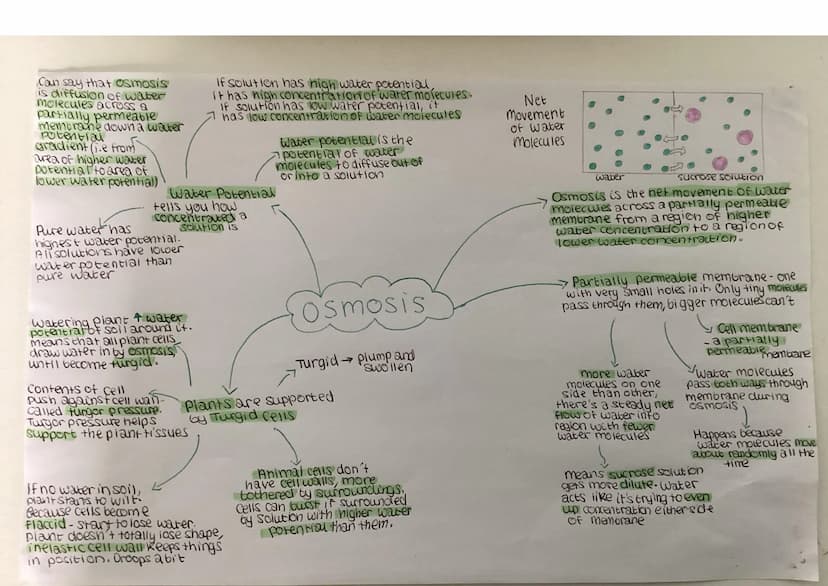 Can say that osmosis
is diffusion of water
molecules across a
partially permeable
membrane down a water
potential
gradient (i.e from
area of higher water
potential to area of
lower water potential)
If solution has high water potential,
it has high concentration of water molecules.
If solution has low water potential, it
has low concentration of water molecules
Water potential is the
potential of water
molecules to diffuse out of
or into a solution
Water Potential
tells you how
concentrated a
solution is
Pure water has
highest water potential.
All solutions have lower
water potential than
pure water
Net
movement
of water
molecules
water
sucrose solution
Osmosis is the net movement of water
molecules across a partially permeable
membrane from a region of higher
water concentration to a region of
lower water concentration.
OSMOSIS
Partially permeable membrane - one
with very small holes in it. Only tiny molecules
pass through them, bigger molecules can't
Cell membrane
- a partially
permeable membrane
more water
molecules on one
side than other,
there's a steady net
flow of water into
region with fewer
water molecules
Water molecules
pass both ways through
membrane during
osmosis
Happens because
water molecules move
about randomly all the
time
means sucrose solution
gets more dilute. Water
acts like it's trying to even
up concentration either side
of membrane
Watering plant ↑ water
potential of soil around it.
means that all plant cells
draw water in by osmosis
until become turgid.
Turgid → plump and
swollen
Contents of cell
push against cell wall -
called turgor pressure.
Turgor pressure helps
support the plant tissues
Plants are supported
by Turgid Cells
If no water in soil,
plant starts to wilt.
Because cells become
flaccid - start to lose water.
Plant doesn't totally lose shape,
inelastic cell wall keeps things
in position. Droops a bit
Animal cells don't
have cell walls, more
bothered by surroundings.
Cells can burst if surrounded
by solution with higher water
potential than them.